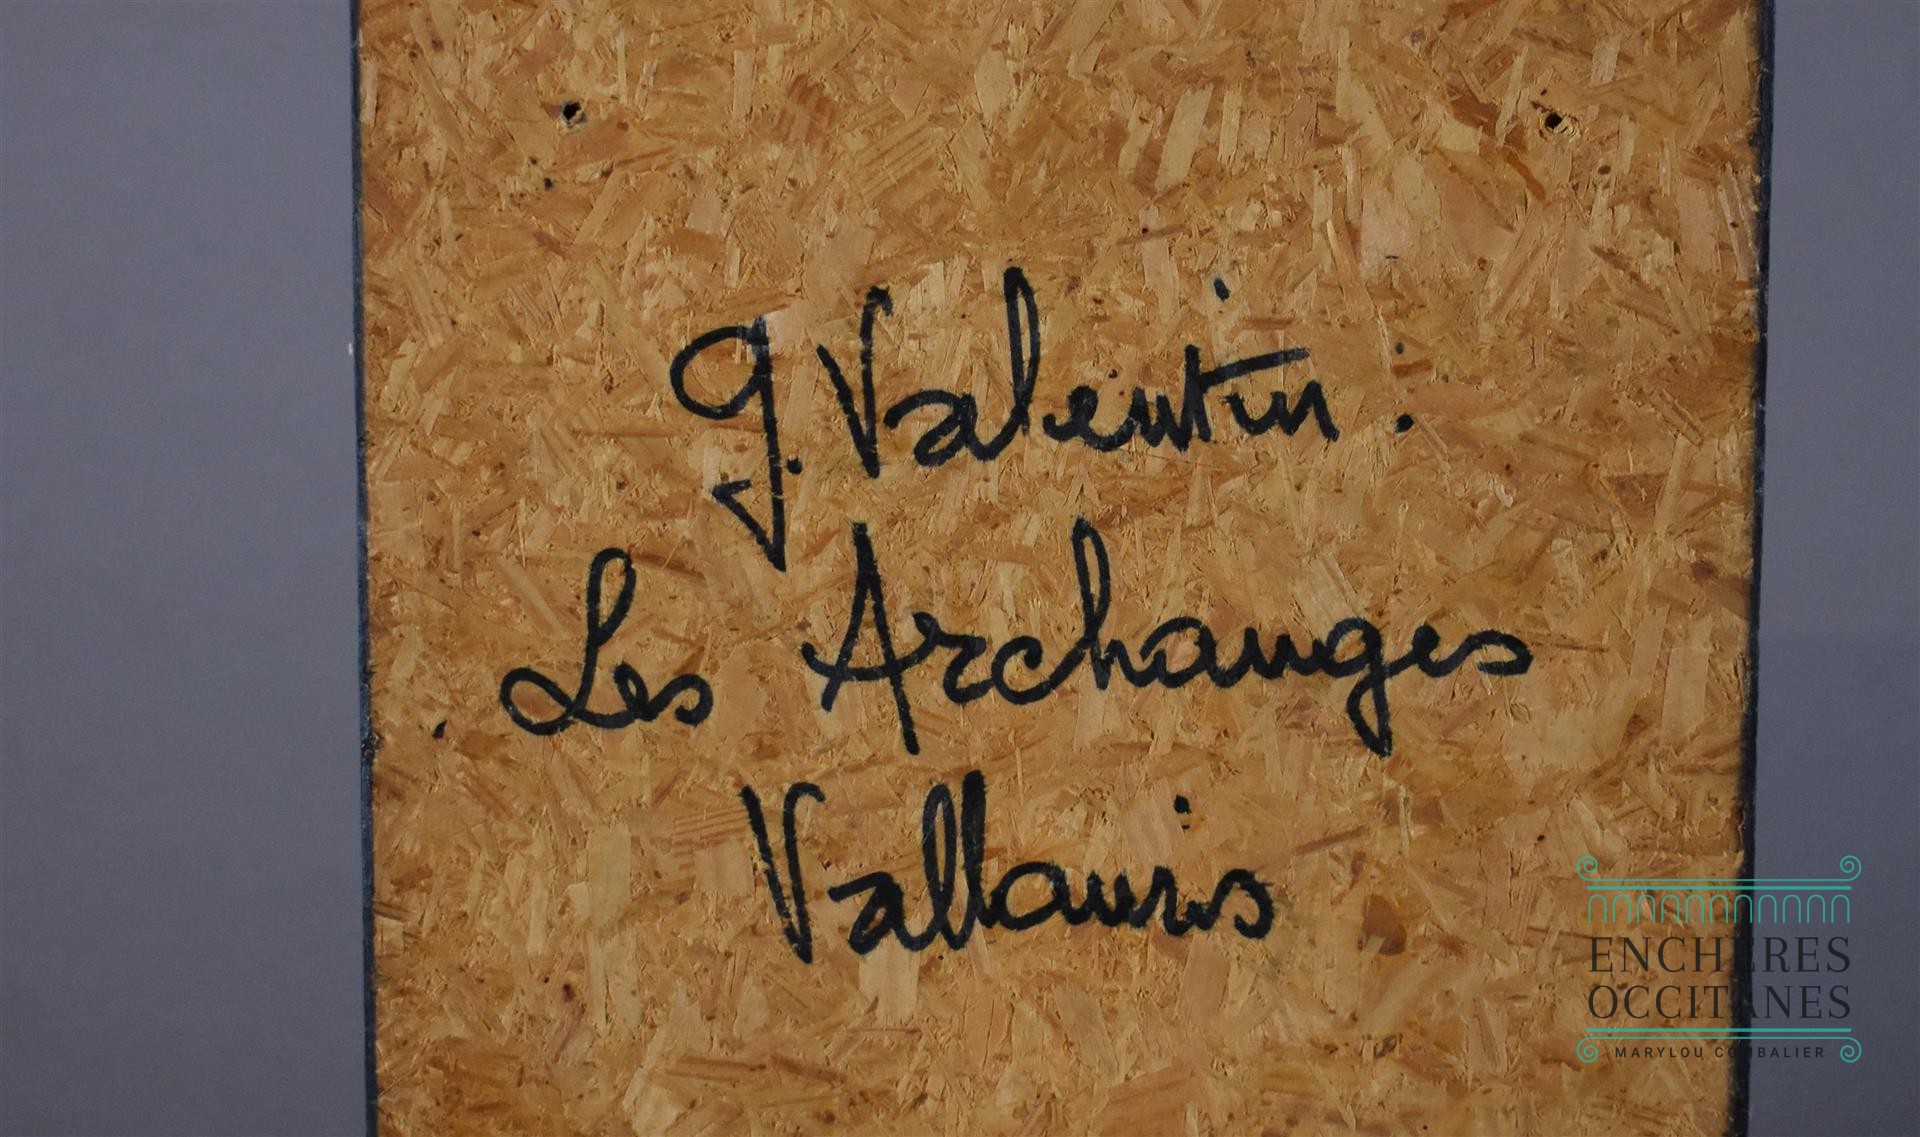 G. Valentin.
Les Archanges
Vallauris
ENCHÈRES
OCCITANES
MARYLOU COMBALIER